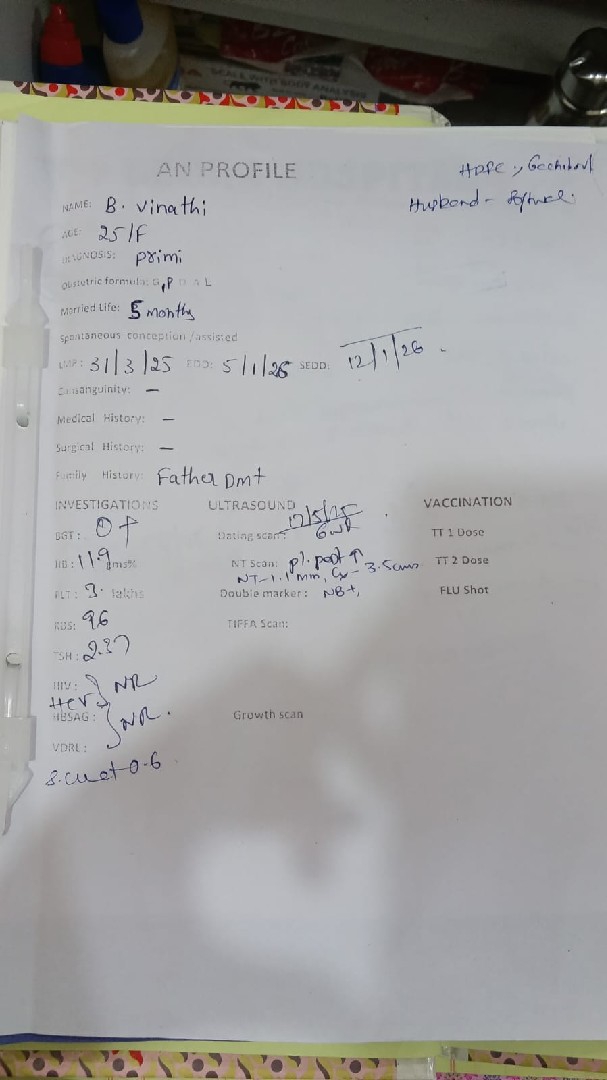 SCALE WITH BODY ANALYSIS
AN PROFILE
HDFC, Gachibowl
Husband - Software.
NAME: B. Vinathi
AGE: 25/F
DIAGNOSIS: primi
Obstetric formula: G, P L
Married Life: 5 months
Spontaneous conception /assisted
LMP: 31/3/25 EDD: 5/1/26 SEDD: 12/1/26
Consanguinity: —
Medical History: —
Surgical History: —
Family History: Father DM+
INVESTIGATIONS ULTRASOUND VACCINATION
BGT: O+ Dating scan: 12/5/25 6wk TT 1 Dose
HB: 11.9 gms% NT Scan: pl. post ↑ TT 2 Dose
NT-1.1mm, Cx- 3.5cms
PLT: 3. lakhs Double marker: FLU Shot
RBS: 96 TIFFA Scan:
TSH: 2.37
HIV: } NR
HCV
HBSAG: } NR. Growth scan
VDRL:
S. Creat-0.6